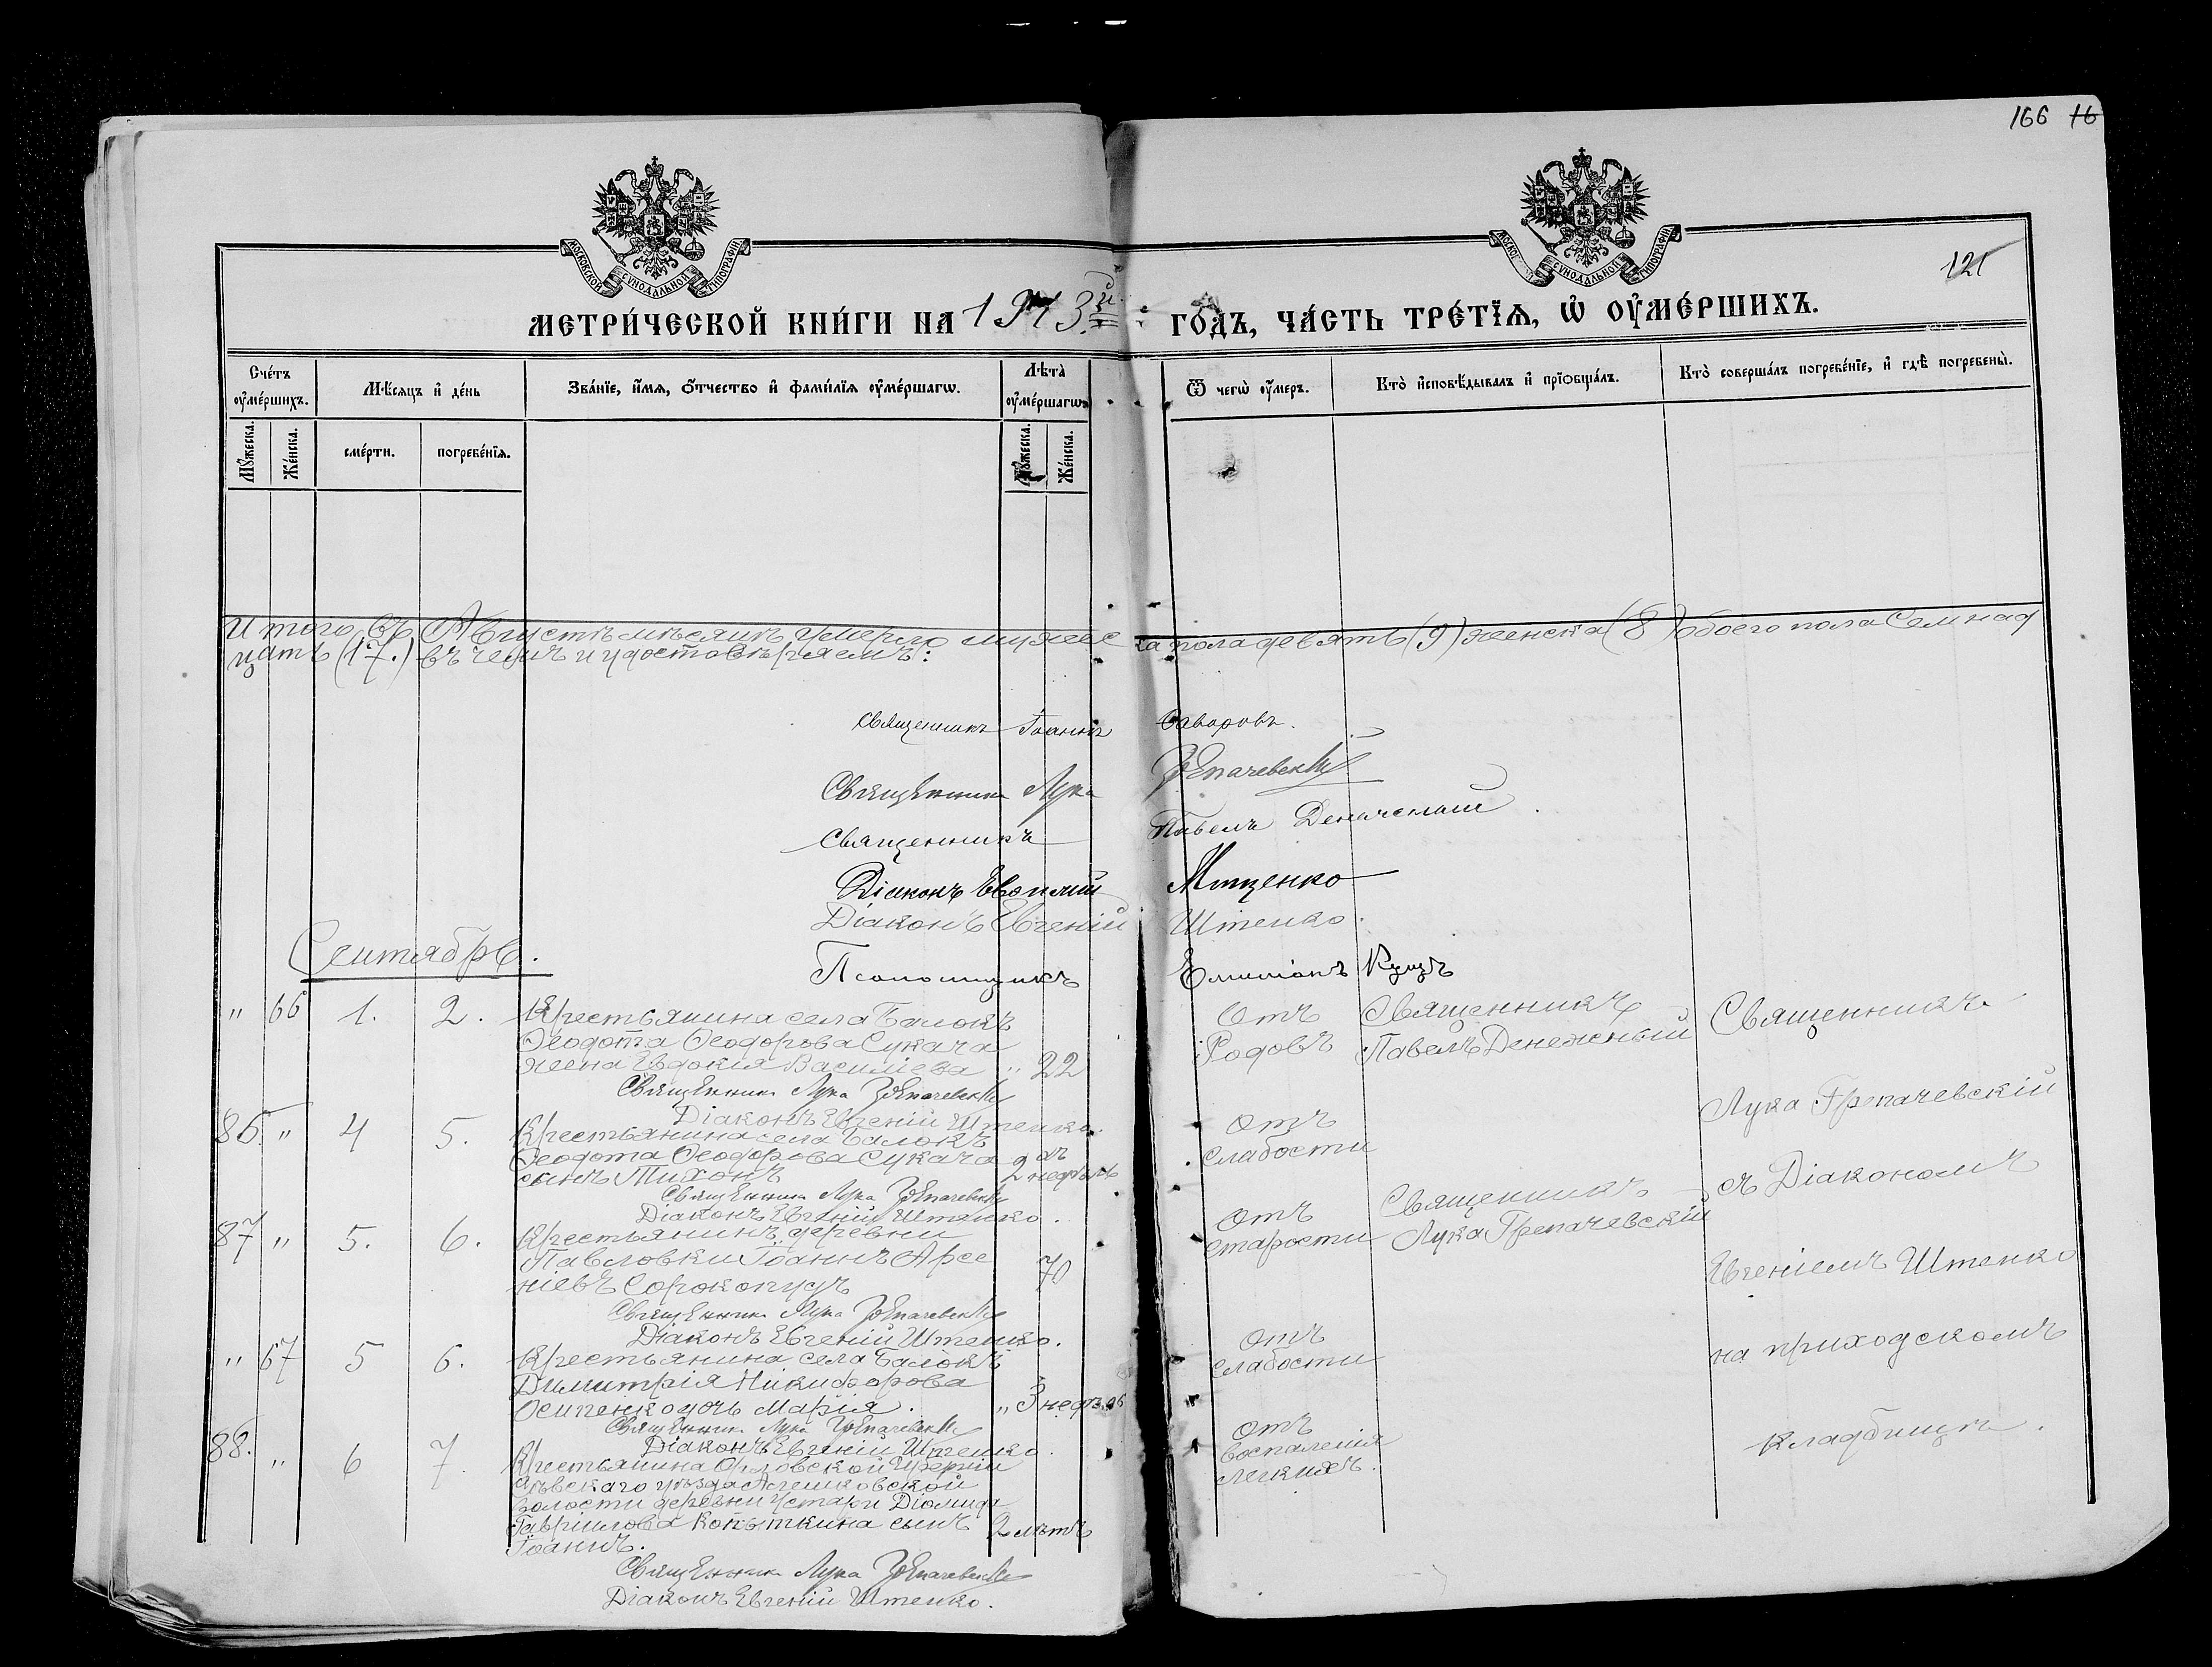 166 16
МОСКОВСКОЙ СУНОДАЛЬНОЙ ТИПОГРАФІИ
МОСКО СУНОДАЛЬНОЙ ТИПОГРАФІИ
121
МЕТРИ́ЧЕСКОЙ КНИ́ГИ НА 1913й ГО́ДЪ, ЧА́СТЬ ТРЕ́ТЇѦ, Ѡ҆ ОУ҆МЕ́РШИХЪ.
Сче́тъ оу҆ме́ршихъ.
Мѣ́сѧцъ и҆ де́нь
Зва́нїе, и҆́мѧ, ѻ҆́тчество и҆ фами́лїѧ оу҆ме́ршагѡ.
Лѣ́та оу҆ме́ршагѡ
Ѿ чегѡ̀ оу҆́меръ.
Кто̀ и҆сповѣ́дывалъ и҆ прїѡбща́лъ.
Кто̀ соверша́лъ погребе́нїе, и҆ гдѣ̀ погребены̀.
Мꙋ́жеска.
Же́нска.
сме́рти.
погребе́нїѧ.
Мꙋ́жеска.
Же́нска.
Итого въ Августѣ мѣсяцѣ умерло мужеска пола девять (9) женска (8) обоего пола Семнад
цать (17.) въ чемъ и удостовѣряемъ:
Священникъ Іоаннъ
Священникъ Лука Грепачевскій
Священникъ Павелъ Денежный.
Діаконъ Мищенко
Діаконъ Евгеній Штепко.
Псаломщикъ Куцъ
Сентябрь.
" 66 1. 2. Крестьянина села Балокъ
Ѳеодота Ѳеодорова Сукача
жена Евдокія Васильева " 22
Отъ Родовъ
Священникъ Павелъ Денежный
Священникъ Лука Грепачевскій
Діаконъ Евгеній Штепко.
86. " 4 5. Крестьянина села Балокъ
Ѳеодота Ѳеодорова Сукача
сынъ Тихонъ 2 недѣль
Отъ слабости
Священникъ Лука Грепачевскій
Діаконъ Евгеній Штепко.
87 " 5. 6. Крестьянинъ деревни
Павловки Іоаннъ Арсе
ніевъ Сорокопудъ 70
Отъ старости
Священникъ Лука Грепачевскій
Священникъ Лука Грепачевскій
Діаконъ Евгеній Штепко.
" 67 5 6. Крестьянина села Балокъ
Димитрія Никифорова
Осипенко дочь Марія. " 3 недѣль
Отъ слабости
Священникъ Лука Грепачевскій
Діаконъ Евгеній Штепко.
88. " 6 7. Крестьянина Орловской Губерніи
уѣзда
волости деревни Діомида
Гавріилова Копыткина сынъ 2 лѣтъ
Іоаннъ.
Отъ воспаленія легкихъ.
Священникъ Лука Грепачевскій
Діаконъ Евгеній Штепко.
Священникъ
Лука Грепачевскій
съ Діакономъ
Евгеніемъ Штепко
на приходскомъ
кладбищѣ.